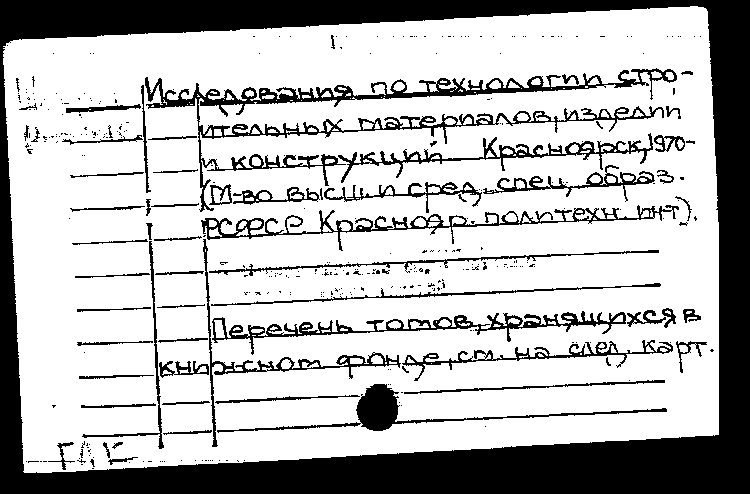 1.
Исследования по технологии стро-
ительных материалов, изделий
и конструкций. Красноярск, 1970-
(М-во высш. и сред. спец. образ.
РСФСР. Краснояр. политехн. ин-т).
Перечень томов, хранящихся в
книжном фонде, см. на след. карт.